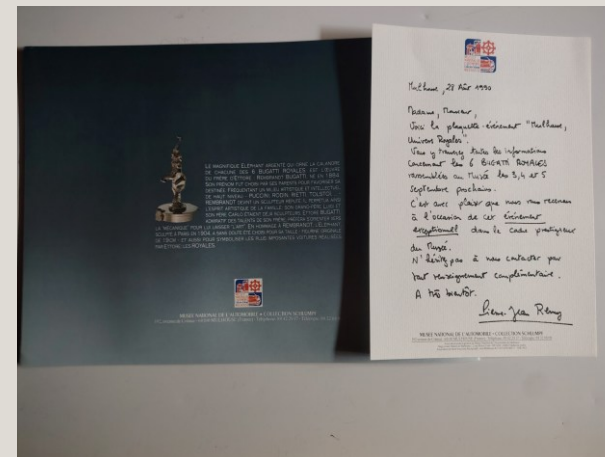 LE MAGNIFIQUE ÉLÉPHANT ARGENTÉ QUI ORNE LA CALANDRE
DE CHACUNE DES 6 BUGATTI ROYALES EST L'ŒUVRE
DU FRÈRE D'ETTORE : REMBRANDT BUGATTI NÉ EN 1884.
SON PRÉNOM FUT CHOISI PAR SES PARENTS POUR FAVORISER SA
DESTINÉE. FRÉQUENTANT UN MILIEU ARTISTIQUE ET INTELLECTUEL
DE HAUT NIVEAU - PUCCINI, RODIN, RIETTI, TOLSTOÏ -
REMBRANDT DEVINT UN SCULPTEUR RÉPUTÉ. IL PERPÉTUA AINSI
L'ESPRIT ARTISTIQUE DE LA FAMILLE : SON GRAND-PÈRE LUIGI ET
SON PÈRE CARLO ÉTAIENT DÉJÀ SCULPTEURS. ETTORE BUGATTI
ADMIRATIF DES TALENTS DE SON FRÈRE, PRÉFÉRA S'ORIENTER VERS
LA MÉCANIQUE "POUR LUI LAISSER L'ART". EN HOMMAGE À REMBRANDT, L'ÉLÉPHANT
SCULPTÉ À PARIS EN 1904, A SANS DOUTE ÉTÉ CHOISI POUR SA TAILLE - FIGURINE ORIGINALE
DE 19CM - ET AUSSI POUR SYMBOLISER LES PLUS IMPOSANTES VOITURES RÉALISÉES
PAR ETTORE : LES ROYALES.
MUSÉE NATIONAL DE L'AUTOMOBILE • COLLECTION SCHLUMPF
Mulhouse, 28 Août 1990
Madame, Monsieur,
Voici la plaquette-événement "Mulhouse,
Univers Royales".
Vous y trouverez toutes les informations
concernant les 6 BUGATTI ROYALES
rassemblées au Musée les 3, 4 et 5
septembre prochains.
C'est avec plaisir que nous vous recevrons
à l'occasion de cet événement
exceptionnel dans le cadre prestigieux
du Musée.
N'hésitez pas à nous contacter pour
tout renseignement complémentaire.
A très bientôt.
Pierre Jean Rémy
MUSÉE NATIONAL DE L'AUTOMOBILE • COLLECTION SCHLUMPF